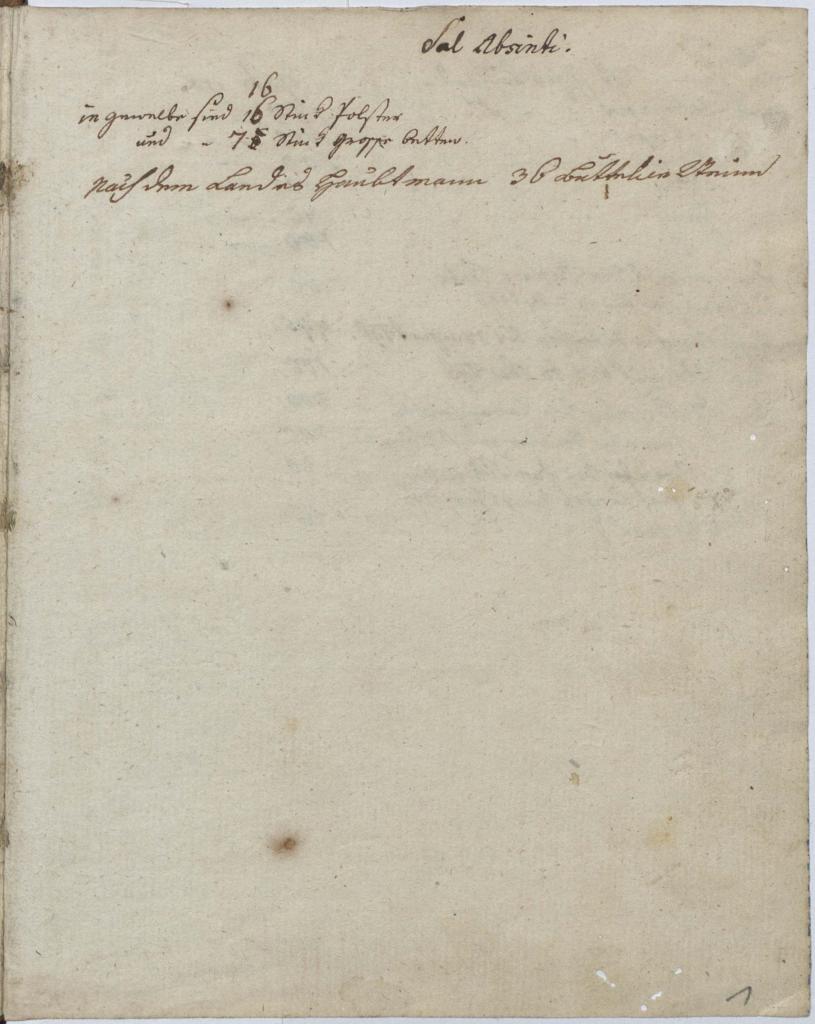 Sal Absinti.
16
in gewelbe sind 16 Stuck Polster
und - 7 Stuck grosse betten.
Nach dem Landes Haubtmann 36 Buttelien
1